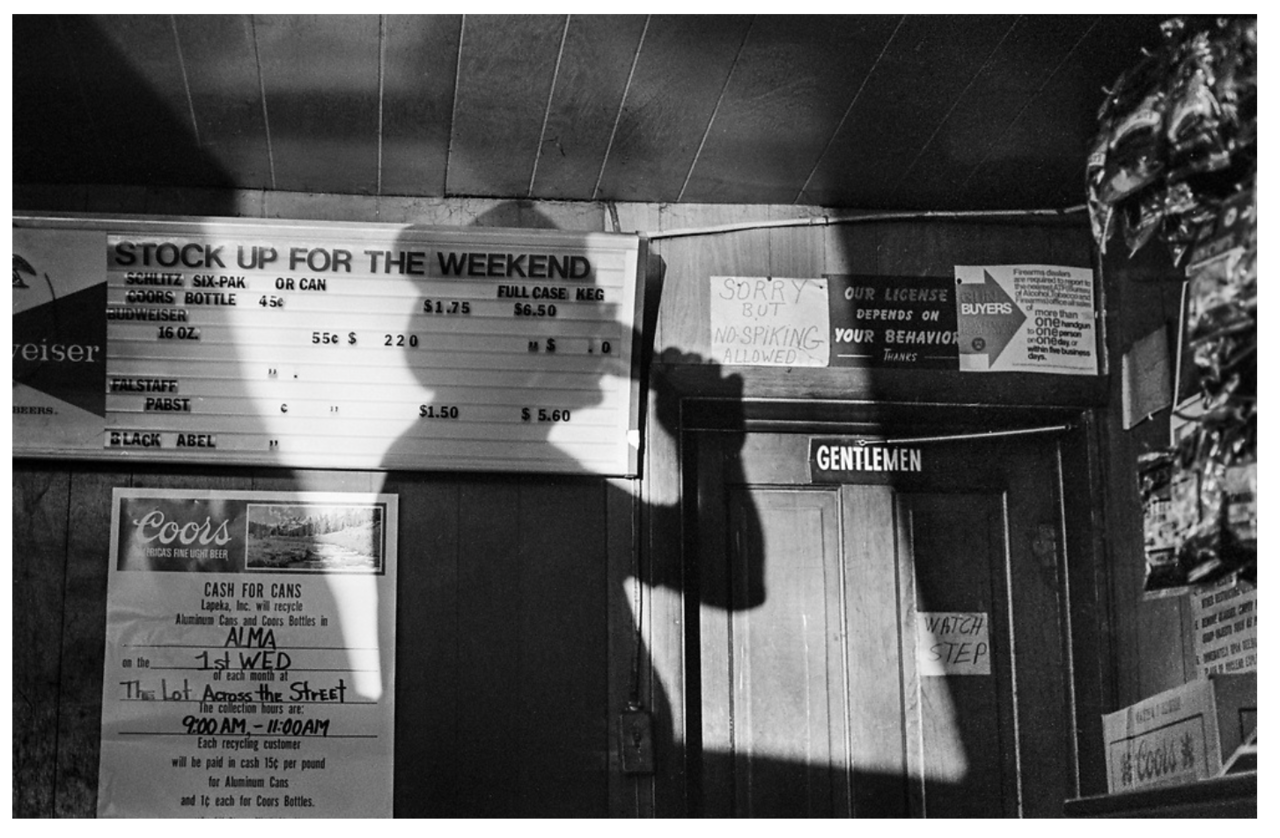 STOCK UP FOR THE WEEKEND
SCHLITZ SIX-PAK OR CAN
FULL CASE KEG
COORS BOTTLE 45¢ $1.75 $6.50
BUDWEISER
16 OZ. 55¢ $ 220 " $ . 0
" .
FALSTAFF
PABST ¢ " $1.50 $ 5.60
BLACK ABEL "
weiser
BEERS.
SORRY
BUT
NO-SPIKING
ALLOWED
OUR LICENSE
DEPENDS ON
YOUR BEHAVIOR
THANKS
GUN
BUYERS
Firearms dealers
are required to report to
the nearest ATF (Bureau
of Alcohol, Tobacco and
Firearms) office all sales
of more than
one handgun
to one person
on one day, or
within five business
days.
GENTLEMEN
WATCH
STEP
Coors
AMERICA'S FINE LIGHT BEER
CASH FOR CANS
Lapeka, Inc. will recycle
Aluminum Cans and Coors Bottles in
AlMA
on the 1st WED
of each month at
The Lot Across the Street
The collection hours are:
9:00 AM. - 11:00AM
Each recycling customer
will be paid in cash 15¢ per pound
for Aluminum Cans
and 1¢ each for Coors Bottles.
Coors